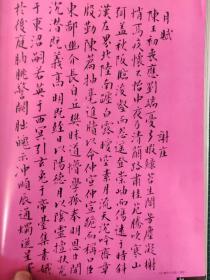 月賦
謝莊
陳王初喪應劉端憂多暇綠苔生閣芳塵凝榭
悄焉疚懷不怡中夜乃清蘭路肅桂苑騰吹寒山
弭蓋秋阪臨濬壑而怨遙登崇岫而傷遠于時斜
漢左界北陸南躔白露曖空素月流天沉吟齊章
殷勤陳篇抽毫進牘以命仲宣仲宣跪而稱曰臣
東鄙幽介長自丘樊昧道懵學孤奉明恩臣聞
沉潛既義高明既經日以陽德月以陰靈擅扶光
于東沼嗣若英于西冥引玄兔于帝臺集素娥
於後庭朒朓警闕朏魄示沖順辰通燭從星